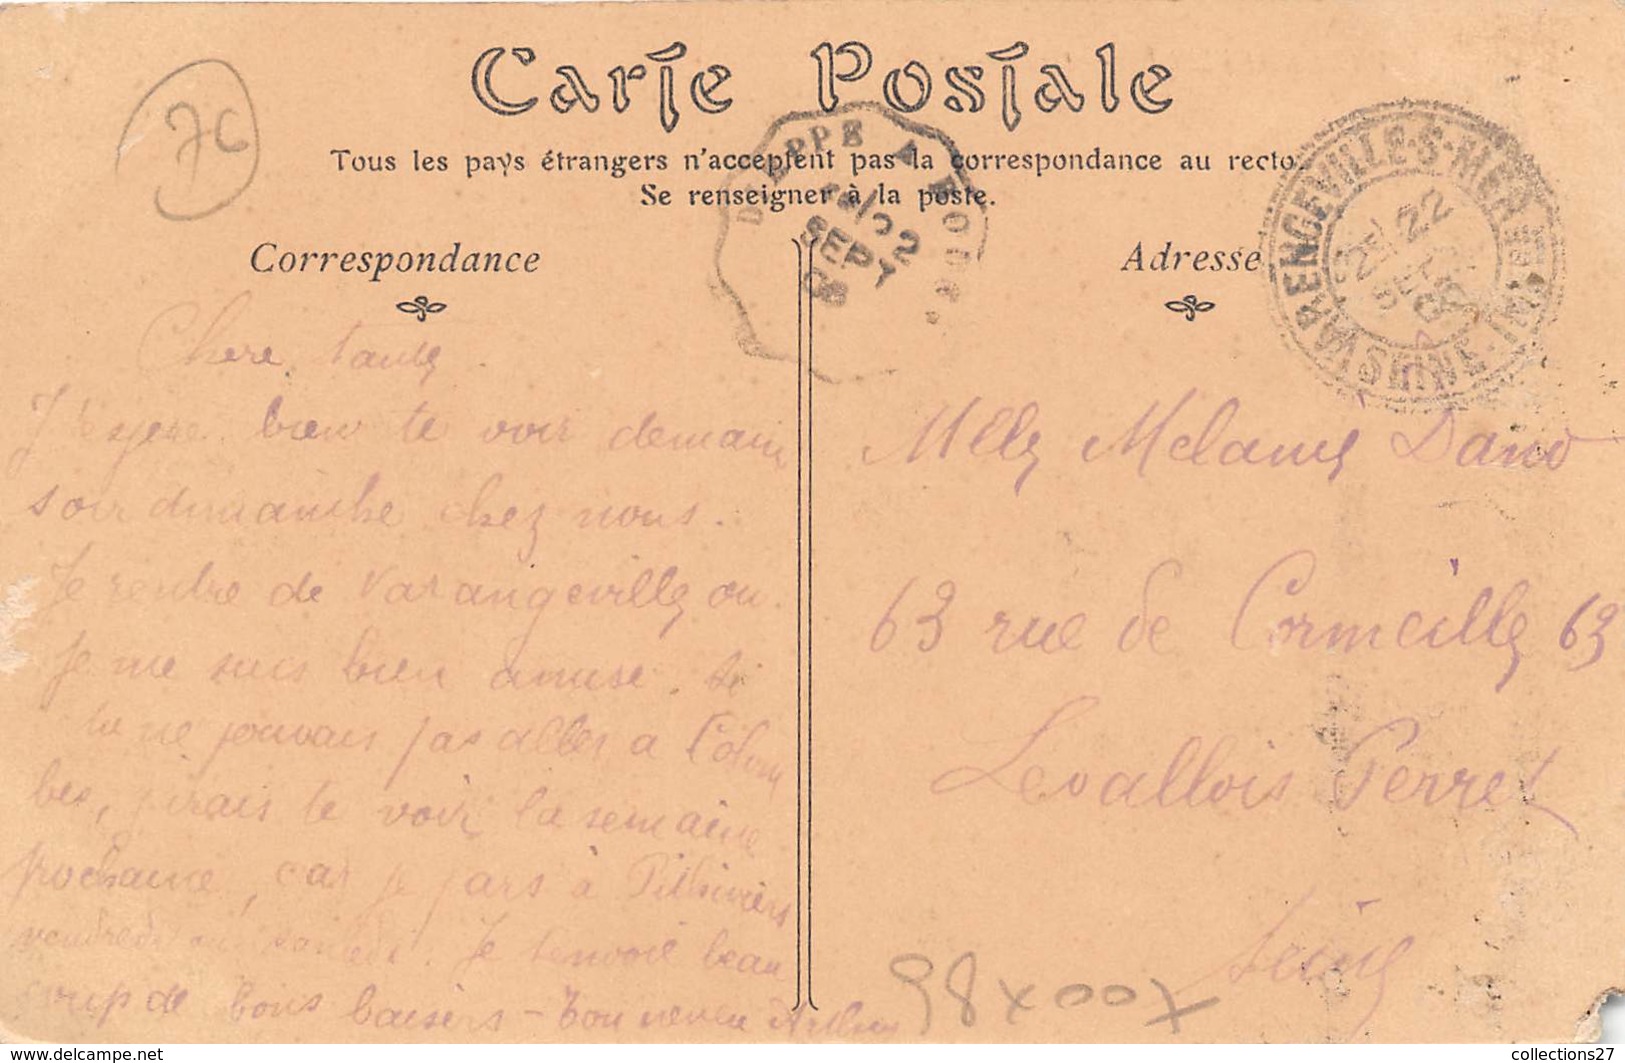 Carte Postale
Tous les pays étrangers n'acceptent pas la correspondance au recto.
Se renseigner à la poste.
Correspondance
Adresse
7C
DIEPPE A ROUEN
22
SEPT
08
VARENGEVILLE-S-MER
SEINE-INF
22
SEPT
08
Chère tante
J'espère bien te voir demain
soir dimanche chez nous.
Je rentre de Varangeville ou
je me suis bien amusé. Si
tu ne pouvais pas aller a Colom
bes, j'irais te voir la semaine
prochaine, car je pars à Pithiviers
vendredi ou samedi. Je t'envoie beau
coup de bons baisers - Ton neveu Arthur
Melle Melanie
63 rue de Cormeille 63
Levallois Perret
Seine
98x007
www.delcampe.net
collections27